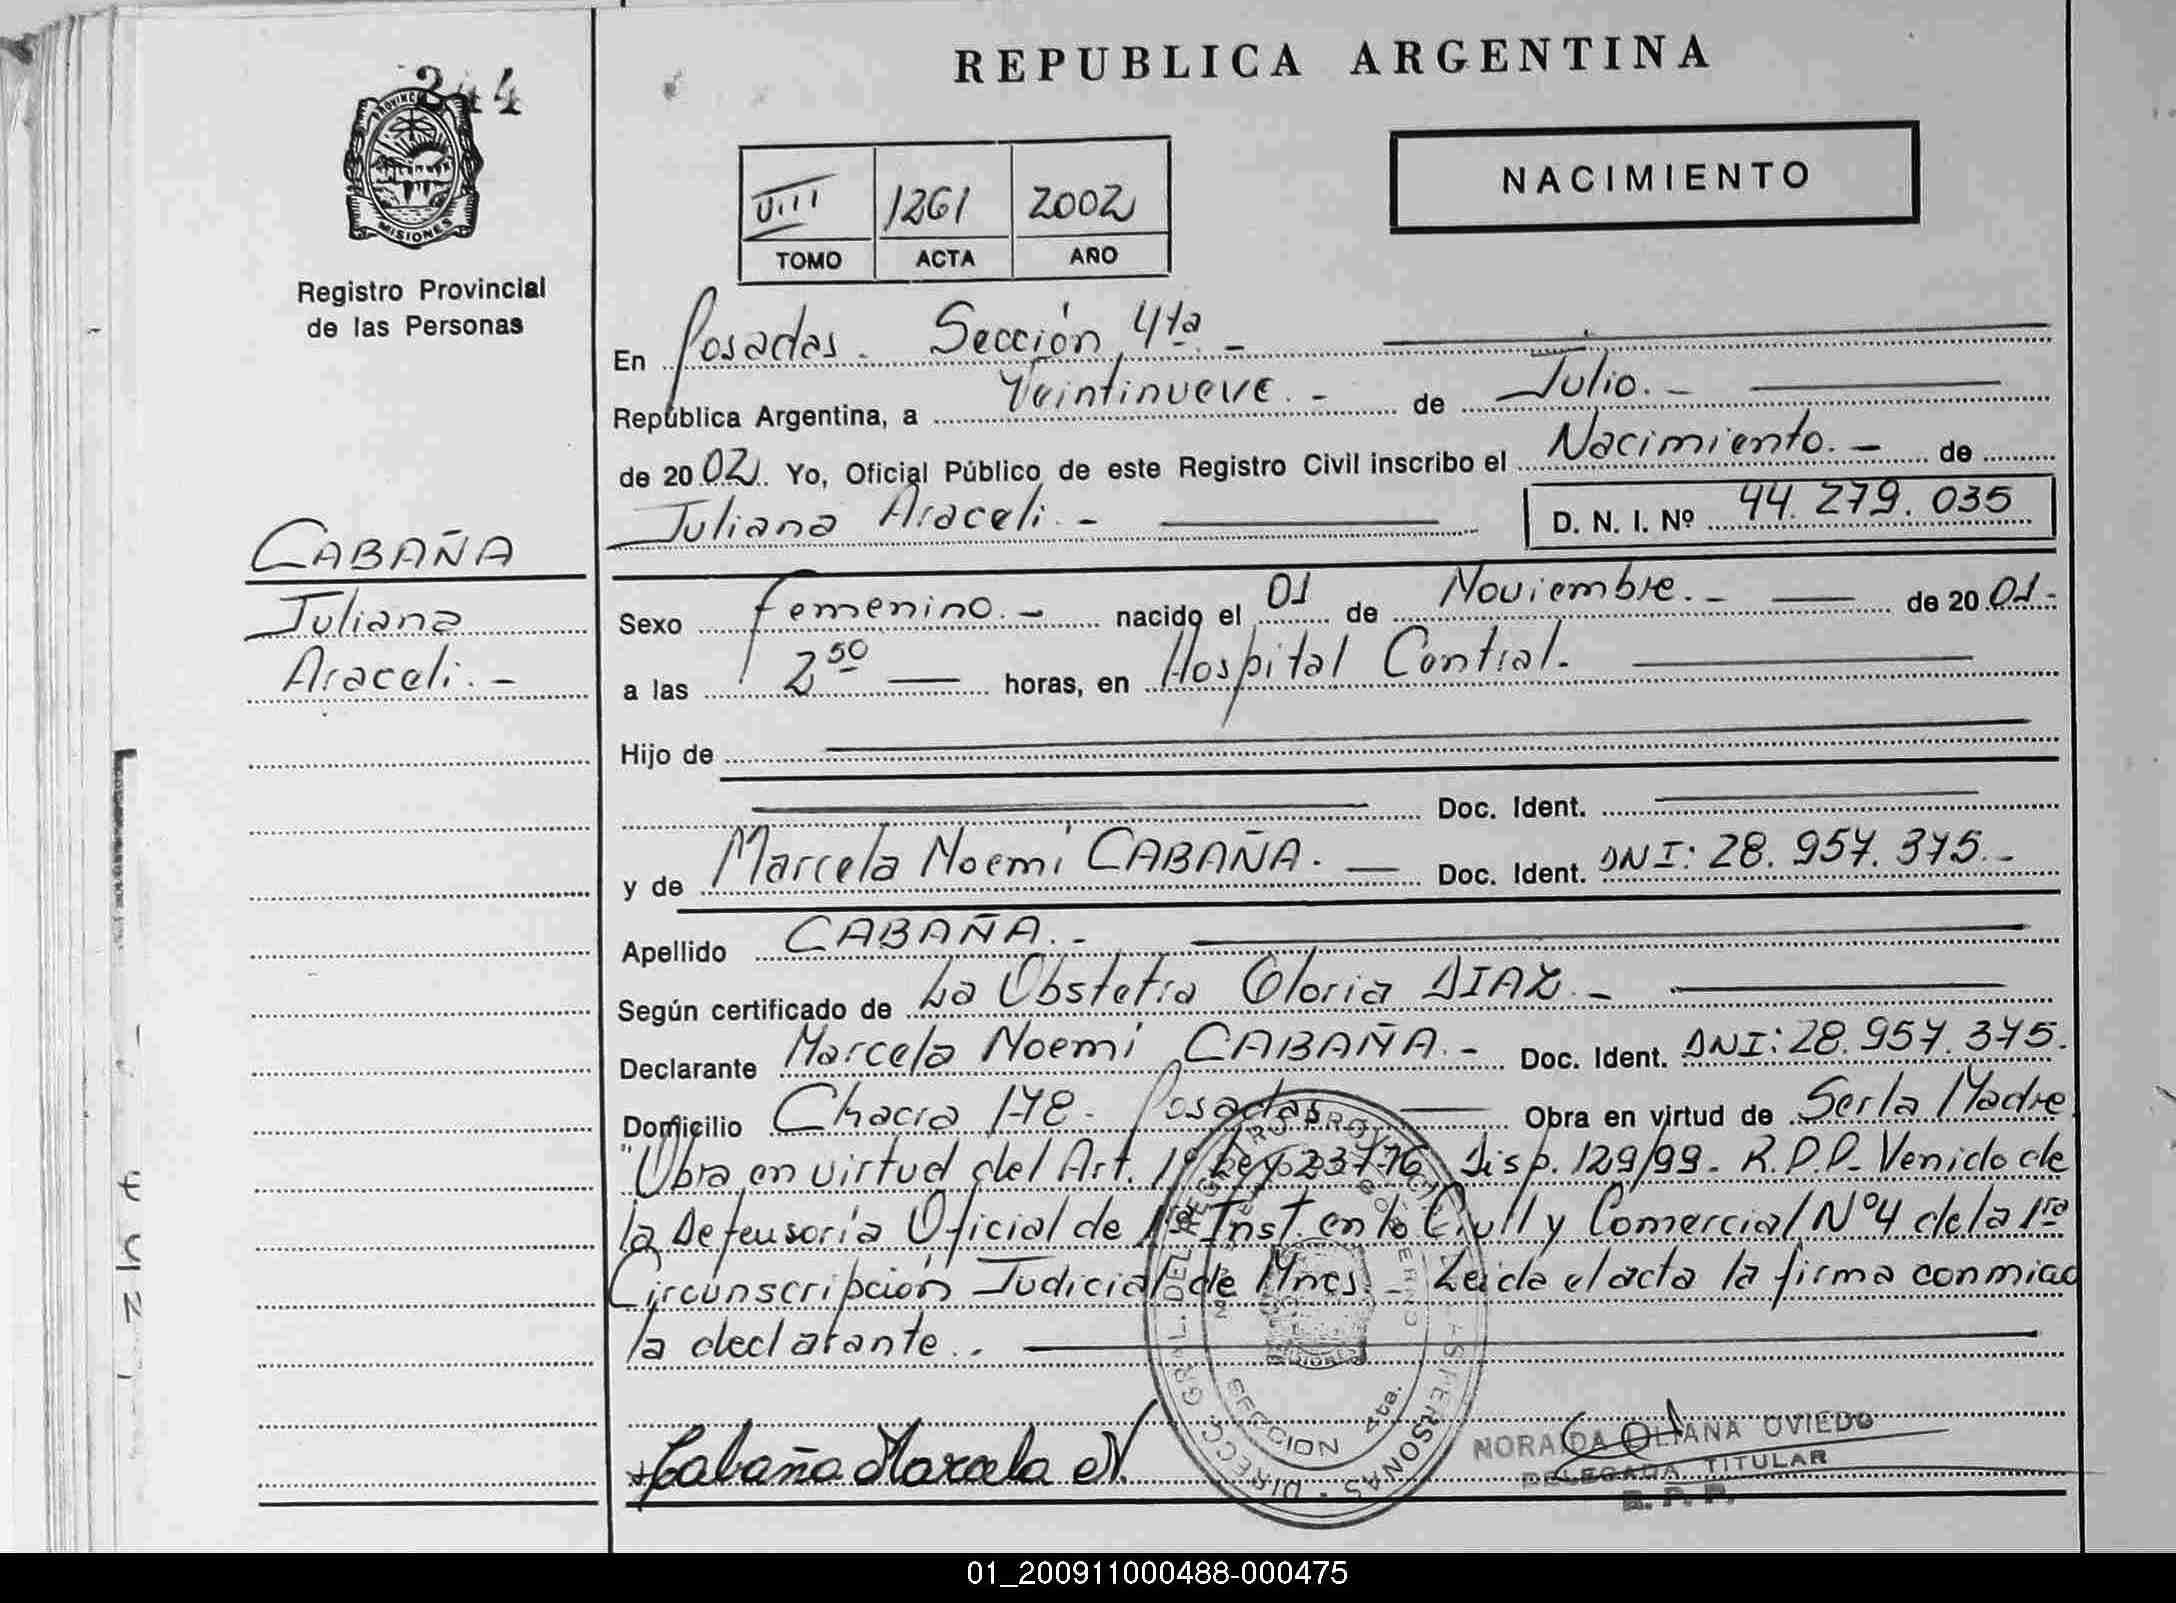 REPUBLICA ARGENTINA
244
PROVINCIA
MISIONES
Registro Provincial
de las Personas
VIII 1261 2002
TOMO ACTA AÑO
NACIMIENTO
En Posadas. Sección 4ta. -
República Argentina, a Veintinueve. - de Julio. -
de 2002. Yo, Oficial Público de este Registro Civil inscribo el Nacimiento. - de
Juliana Araceli. - D. N. I. Nº 44. 279. 035
CABAÑA
Juliana
Araceli. -
Sexo femenino. - nacido el 01 de Noviembre. - de 2001.-
a las 2 50 horas, en Hospital Central.
Hijo de
Doc. Ident.
y de Marcela Noemí CABAÑA. - Doc. Ident. DNI: 28. 957. 375. -
Apellido CABAÑA. -
Según certificado de La Obstetra Gloria DIAZ. -
Declarante Marcela Noemí CABAÑA. - Doc. Ident. DNI: 28. 957. 375.
Domicilio Chacra 178 - Posadas Obra en virtud de Ser la Madre
"Obra en virtud del Art. 1º Ley 23776, Disp. 129/99. R.P.P. Venido de
la Defensoría Oficial de 1ª Inst en lo Civil y Comercial Nº4 de la 1ra
Circunscripción Judicial de Mnes. - Leída el acta la firma conmigo
la declarante. .
Cabaña Marcela N.
DIRECC. GRAL. DEL REGISTRO PROVINCIAL DE LAS PERSONAS
SECCION 4ta.
NORA OVIEDO
DELEGADA TITULAR
R. P. P.
01_200911000488-000475